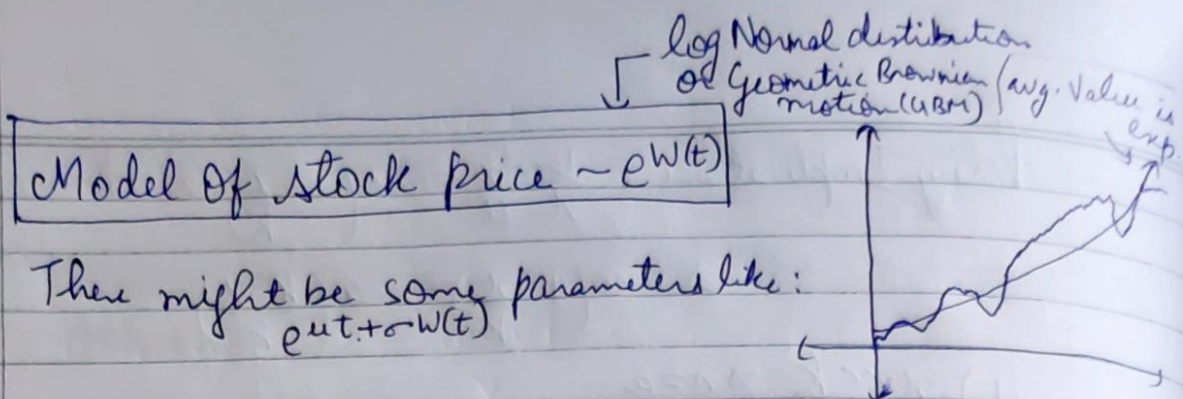 log Normal distibution
or Geometric Brownian / avg. Value is
motion (GBM) exp.
Model of stock price ~ e^W(t)
There might be some parameters like:
e^μt+σW(t)